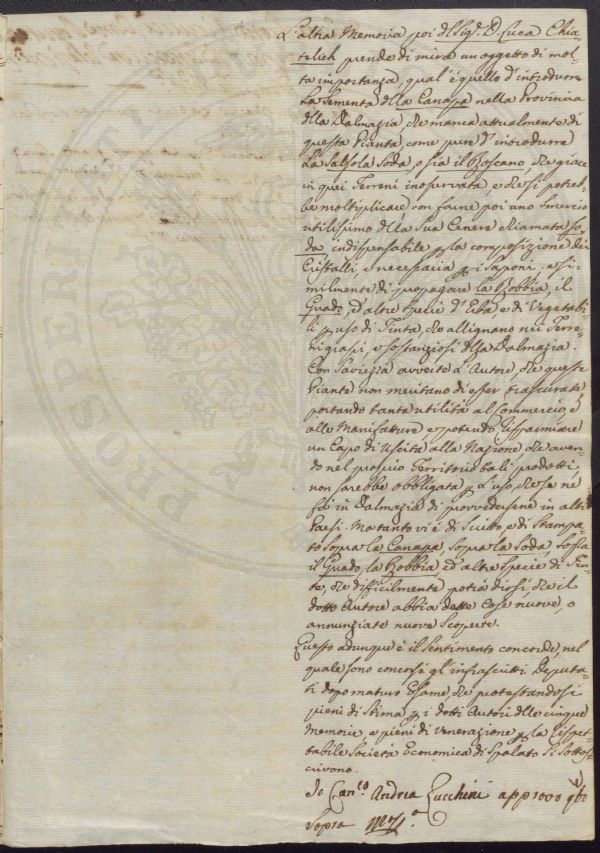 L'altra Memoria poi del Sigr. D. Luca Chia-
telich prende di mira un oggetto di mol-
ta importanza, qual'è quello d'introdurre
La Sementa della Canapa nella Provincia
della Dalmazia, che manca attualmente di
questa Pianta, come pure d'introdurre
La Salsola Soda, o sia il Roscano, che giace
in quei Terreni inoservata, e che si potreb-
be moltiplicare, con farne poi uno smercio
utilissimo della Sua Cenere chiamata So-
da, indispensabile p la composizione dei
Cristalli, e necessaria p i Saponi, e si-
milmente di propagare la Robbia, il
Guado, ed altre specie d'Erba e di Vegetabi-
li p uso di Tinta, che allignano nei Terre-
ni grassi, e sostanziosi della Dalmazia.
Con Saviezza avverte L'Autore, che queste
Piante non meritano di esser trascurate
portando tanta utilità al Commercio, e
alle Manifatture e potendo risparmiare
un Capo di Uscita alla Nazione che aven-
do nel proprio Territorio tali prodotti
non sarebbe obbligata p L'uso, che se ne
fa in Dalmazia di provvedersene in altri
Paesi. Ma tanto vi è di Scritto e di Stampa-
to sopra la Canapa, sopra la Soda, sopra
il Guado, la Robbia ed altre specie di Tin-
te, che difficilmente potrà dirsi, che il
dotto Autore abbia dette Cose nuove, o
annunziate nuove Scoperte.
Questo adunque è il Sentimento concorde, nel
quale sono concorsi gl'infrascritti Deputa-
ti dopo maturo Esame, che protestandosi
pieni di Stima p i dotti Autori delle cinque
Memorie, e pieni di Venerazione p la Rispet-
tabile Società Economica di Spalato Si Sottos-
crivono.
Io Canco Andrea Zucchini approvo qto
Sopra